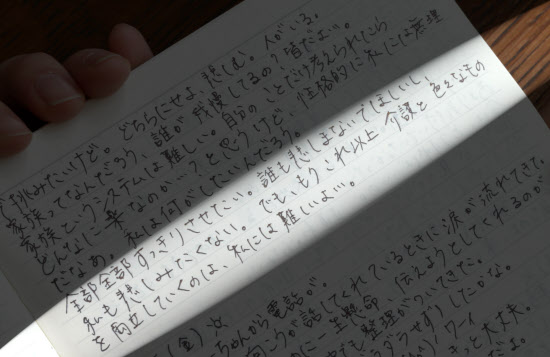 挑みたいけど。どちらにせよ、悲しむ。人がいる。
家族ってなんだろう、誰が我慢してるの？皆だよ…。
家族というシステムは難しい。自分のことだけ考えられたら
どんなに楽なのか…？と思うけど、性格的に私には無理
だなあ。私は何がしたいんだろう。
全部全部すっきりさせたい。誰も悲しまないでほしいし、
私も悲しみたくない。でも、もうこれ以上 介護と色々なもの
を両立していくのは、私には難しいよ…。
(金)
ちゃんから電話が。
話してくれているときに涙が流れてきた。
に一生懸命、伝えようとしてくれるのが
整理がついてきた。
ワイ
きっと大丈夫。